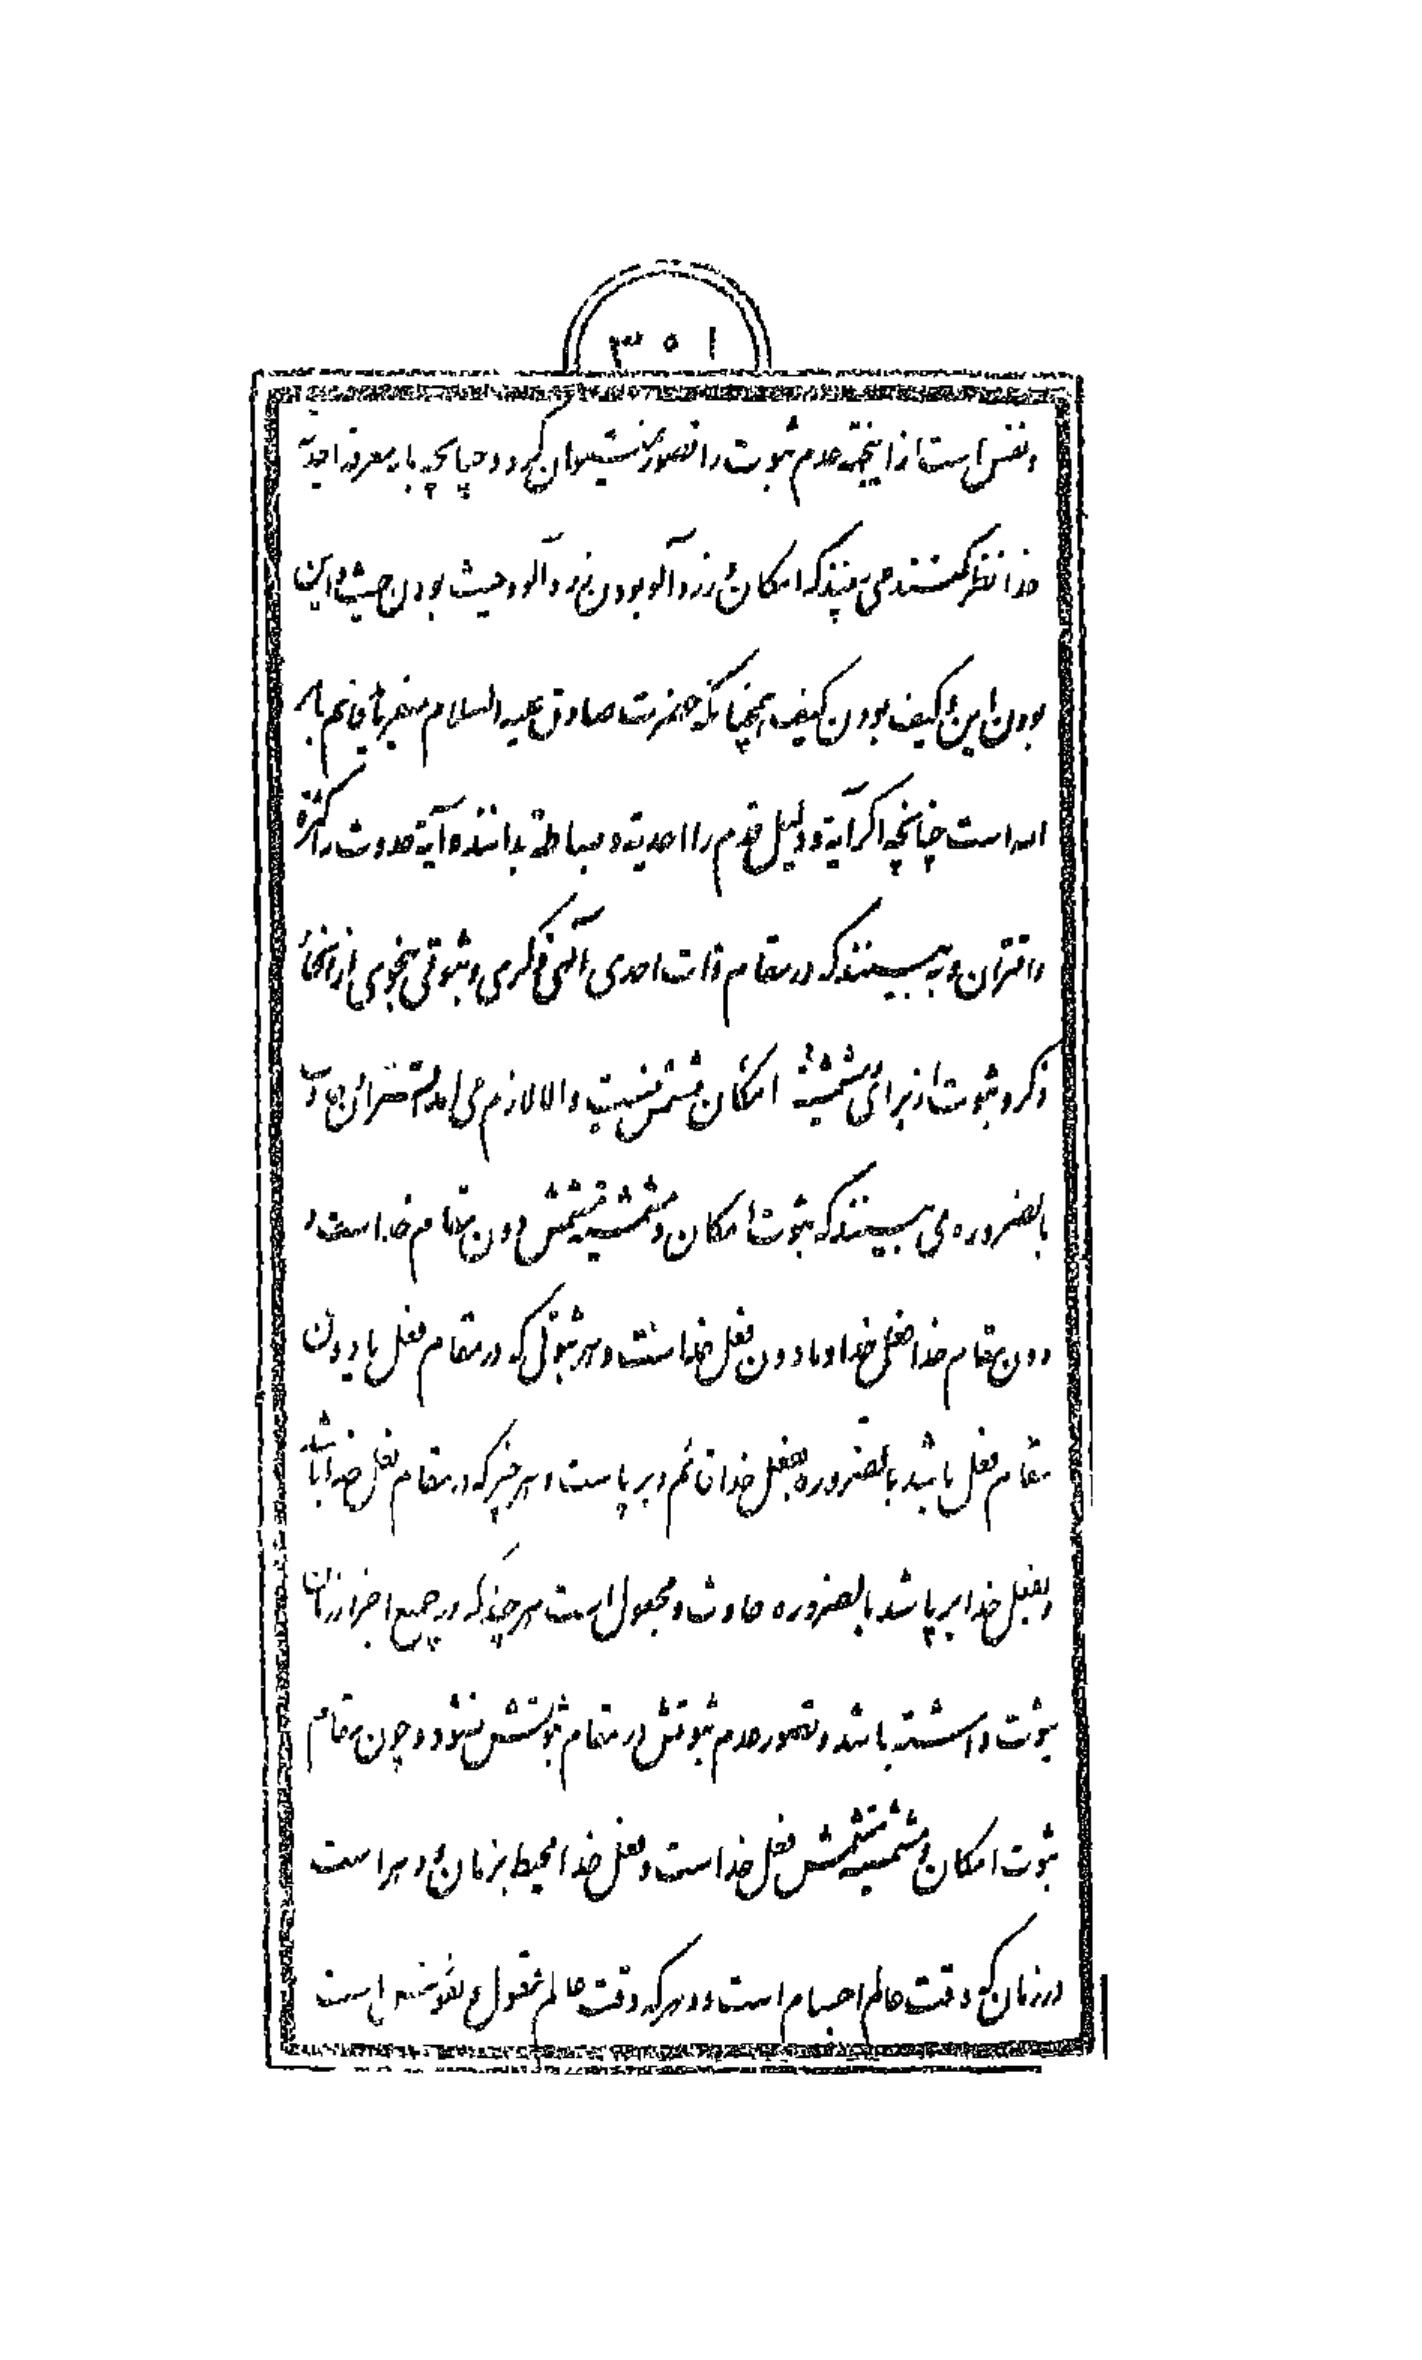 ۳۵۱
و نفس است از اینجهة عدم ثبوت را تصور نمیتوان کرد و چنانچه بار معرفة احدیة
خدا نظر کنند می بینند که امکان و زردآلو بودن زردآلو و حیث بودن حیث و این
بودن این و کیف بودن کیف همچنانکه حضرت صادق علیه السلام میفرماید قائم بامر
الله است چنانچه اگر آیة و دلیل قدم را احدیة و بساطة بدانند و آیة حدوث را کثرة
و اقتران و به بینند که در مقام ذات احدی آلهی ذکری و ثبوتی بنحوی از انحاء
ذکر و ثبوت از برای مشمشیة امکان مشمش نیست و الا لازم می آید اقتران و
بالضروره می بینند که ثبوت امکان و مشمشیة مشمش دون مقام خداست و
دون مقام خدا فعل خدا و مادون فعل خداست و هر ثبوتی که در مقام فعل یا دون
مقام فعل باشد بالضروره بفعل خدا قائم و برپاست و هر چیز که در مقام فعل خدا باشد
و بفعل خدا برپا شد بالضروره حادث و مجعول است هر چند که در جمیع اجزاء زمان
ثبوت داشته باشد و تصور عدم ثبوتش در مقام ثبوتش نشود و چون مقام
ثبوت امکان و مشمشیة مشمش فعل خداست و فعل خدا محیط بزمان و دهر است
در زمان که وقت عالم اجسام است و دهر که وقت عالم عقول و نفوس است